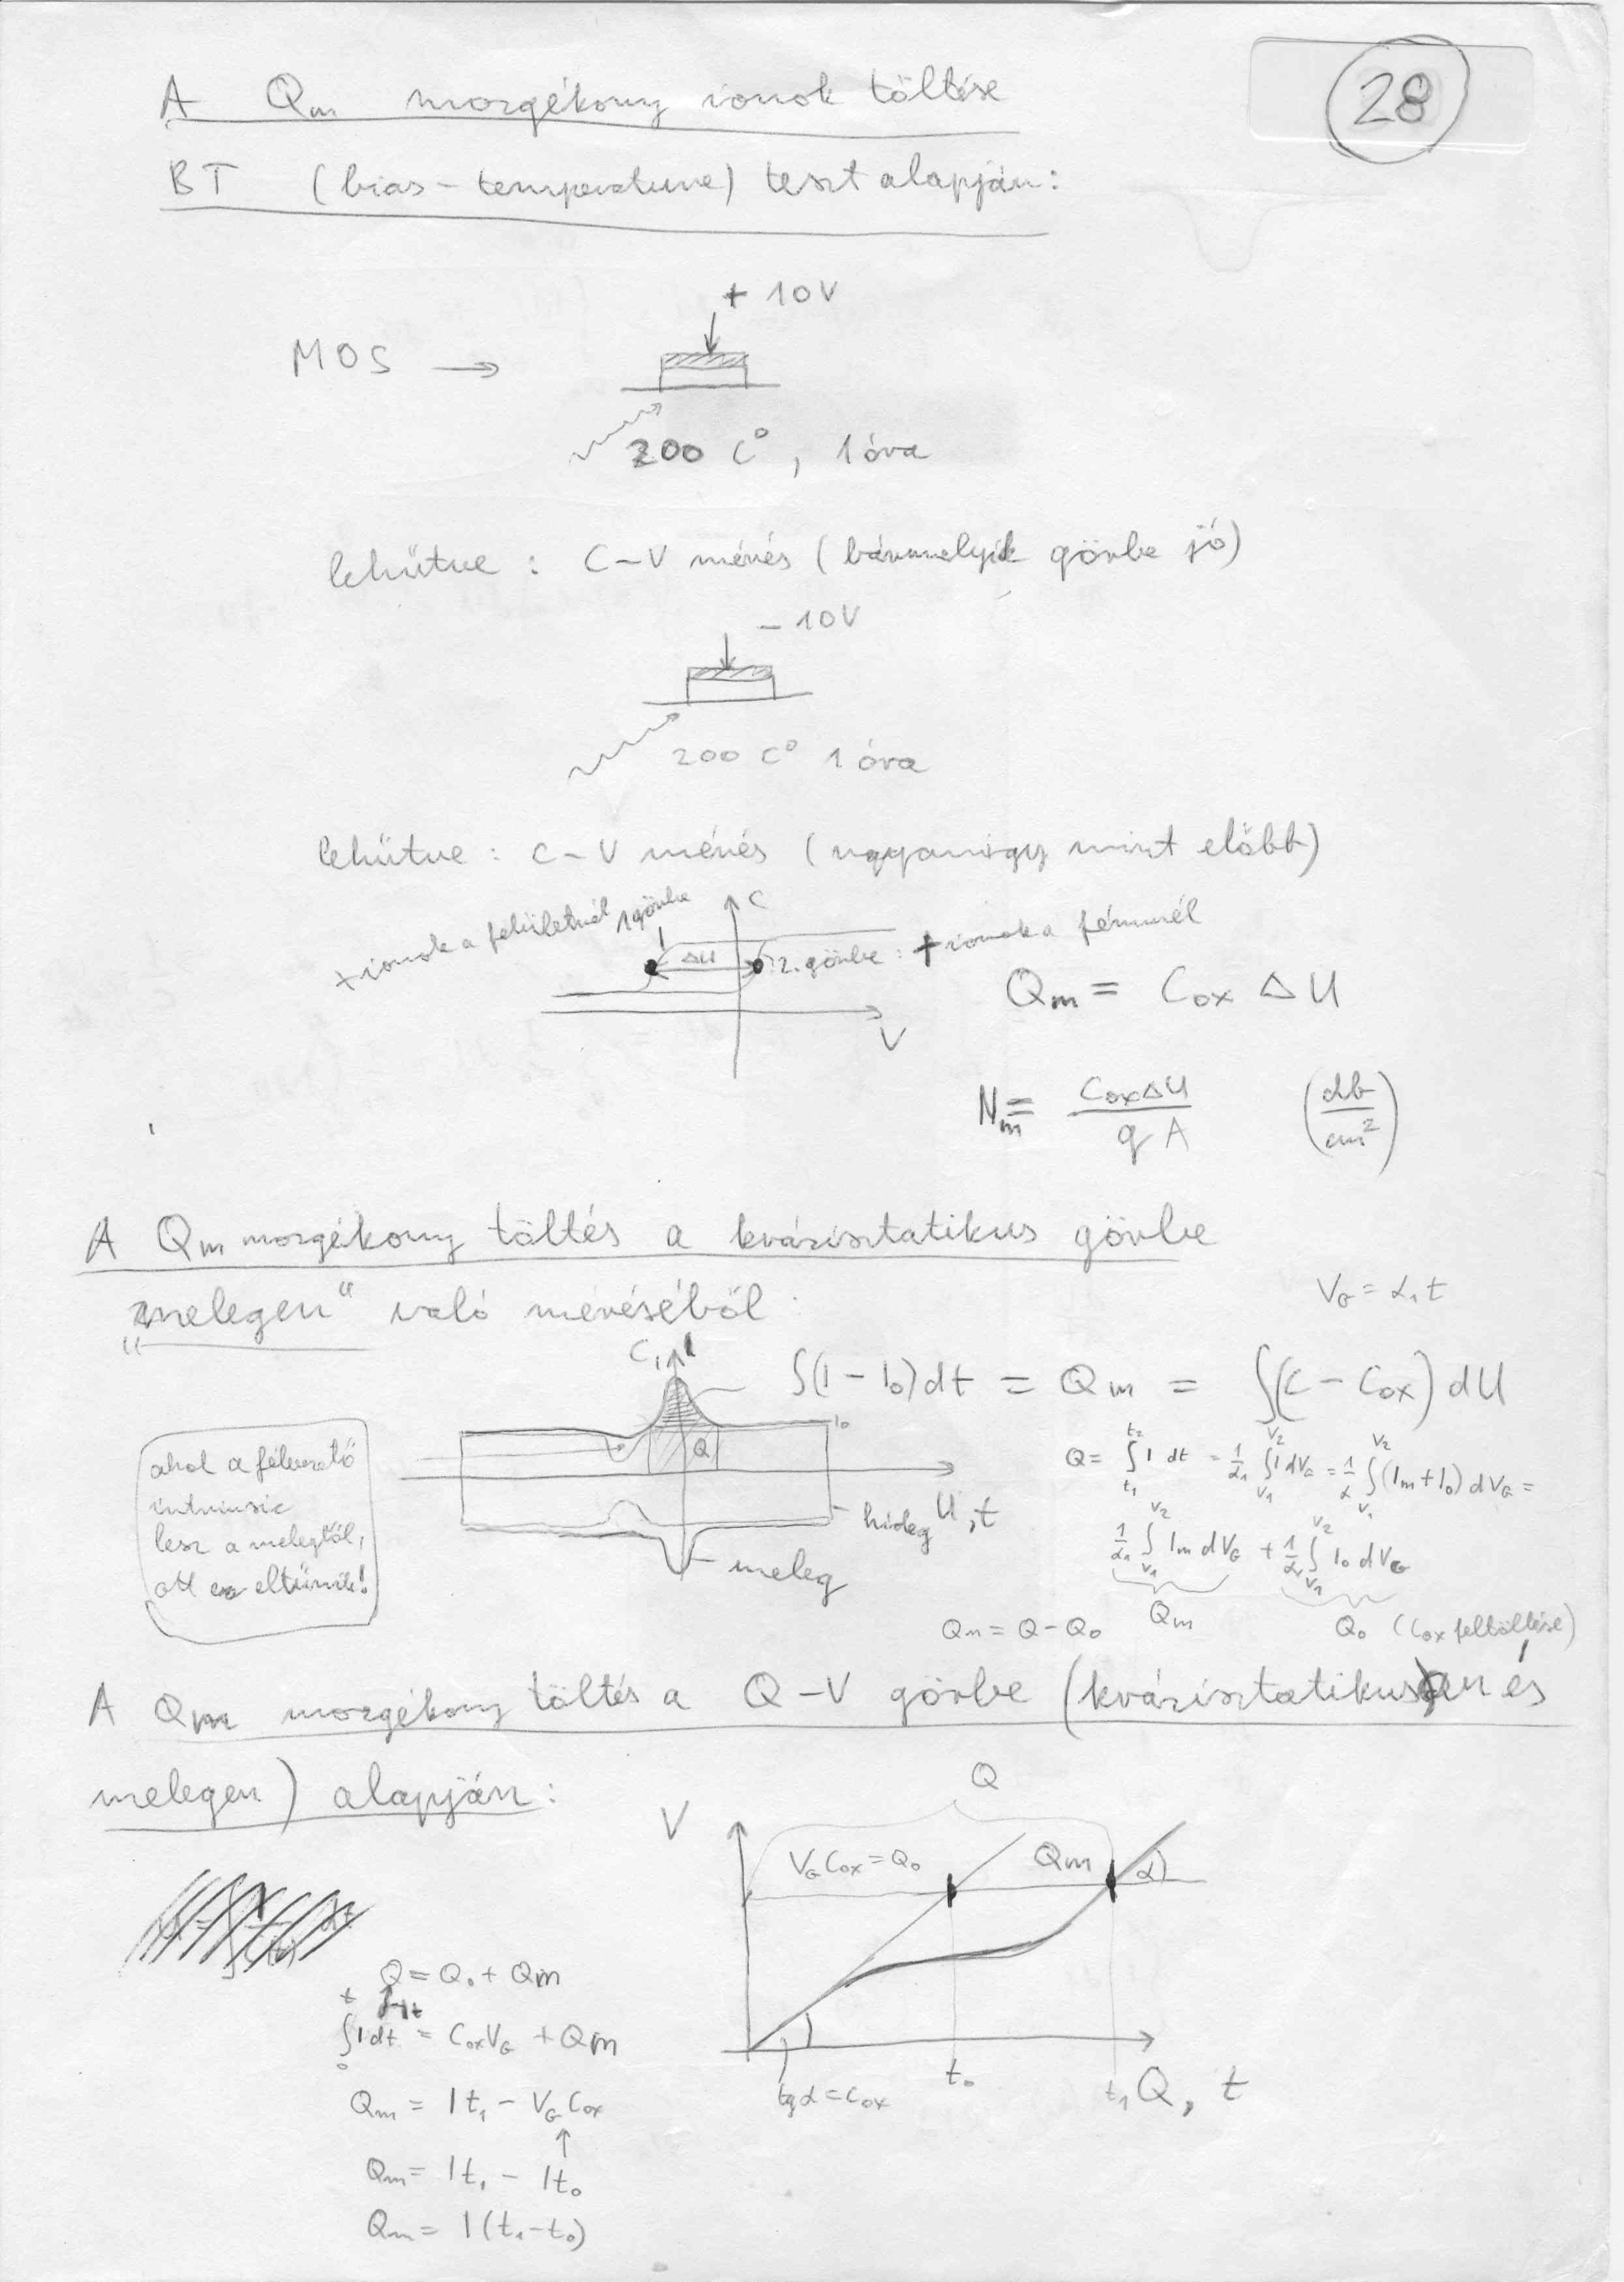 28
A Qm mozgékony ionok töltése
BT (bias-temperature) teszt alapján:
+ 10V
MOS →
200 C°, 1 óra
lehűtve : C-V mérés (bármelyik görbe jó)
- 10V
200 C° 1 óra
lehűtve : C-V mérés (ugyanúgy mint előbb)
+ ionok a felületnél 1 görbe
C
ΔU
2. görbe : + ionok a fémnél
V
Qm = Cox ΔU
Nm = CoxΔU / qA (db/cm²)
A Qm mozgékony töltés a kvázisztatikus görbe
„melegen" való méréséből :
VG = α₁t
C, I
∫(I - I₀)dt = Qm = ∫(C - Cox) dU
I₀
Q
U, t
hideg
meleg
ahol a félvezető
intrinsic
lesz a melegtől,
ott ez eltűnik!
Q = ∫t₁t₂ I dt = 1/α₁ ∫V₁V₂ I dVG = 1/α ∫V₁V₂ (Im + I₀) dVG =
1/α₁ ∫V₁V₂ Im dVG + 1/α₁ ∫V₁V₂ I₀ dVG
Qm = Q - Q₀
Qm
Q₀ (Cox feltöltése)
A Qm mozgékony töltés a Q-V görbe (kvázisztatikusan és
melegen) alapján:
Q
V
VG Cox = Q₀
Qm
α
tgα = Cox
t₀
t₁
Q, t
Q = Q₀ + Qm
∫₀t I dt = CoxVG + Qm
Qm = I t₁ - VG Cox
↑
Qm = I t₁ - I t₀
Qm = I (t₁ - t₀)